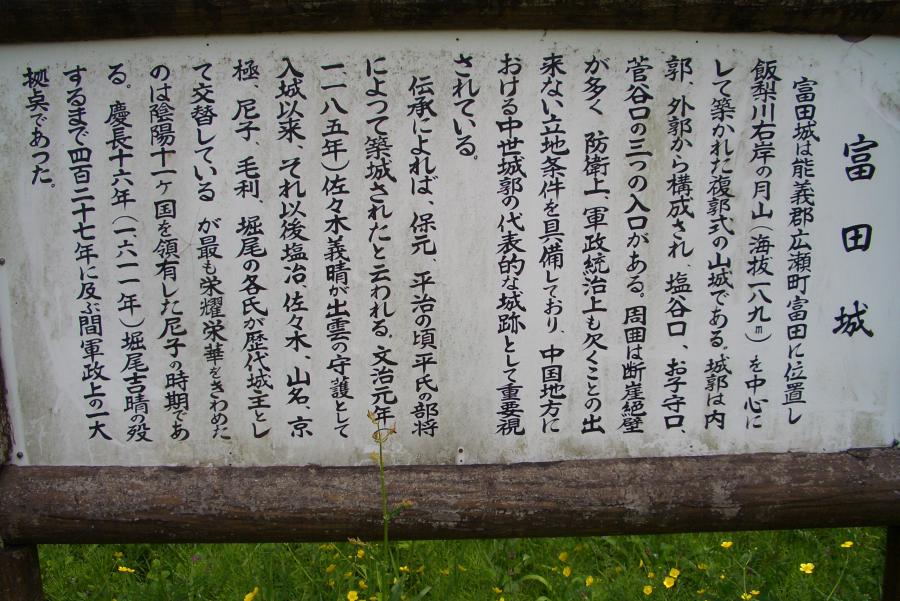 富田城
富田城は能義郡広瀬町富田に位置し
飯梨川右岸の月山(海抜一八九m)を中心に
して築かれた複郭式の山城である。城郭は内
郭、外郭から構成され、塩谷口、お子守口、
菅谷口の三つの入口がある。周囲は断崖絶壁
が多く 防衛上、軍政統治上も欠くことの出
来ない立地条件を具備しており、中国地方に
おける中世城郭の代表的な城跡として重要視
されている。
伝承によれば、保元、平治の頃平氏の部将
によって築城されたと云われる。文治元年
一一八五年)佐々木義晴が出雲の守護として
入城以来、それ以後塩冶、佐々木、山名、京
極、尼子、毛利、堀尾の各氏が歴代城主とし
て交替している が最も栄耀栄華をきわめた
のは陰陽十一ヶ国を領有した尼子の時期であ
る。慶長十六年(一六一一年)堀尾吉晴の歿
するまで四百二十七年に及ぶ間軍政上の一大
拠点であった。